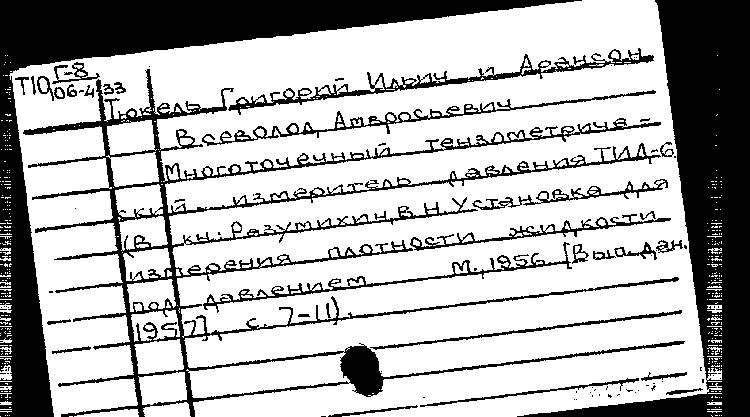 Т10 Г-8
106-4/33
Тюкель, Григорий Ильич и Арансон
Всеволод Амвросьевич
Многоточечный тензометриче-
ский измеритель давления ТИД-6
(В кн.: Разумихин, В.Н. Установка для
измерения плотности жидкости
под давлением М., 1956. [Вып. дан.
1957], с. 7-11).